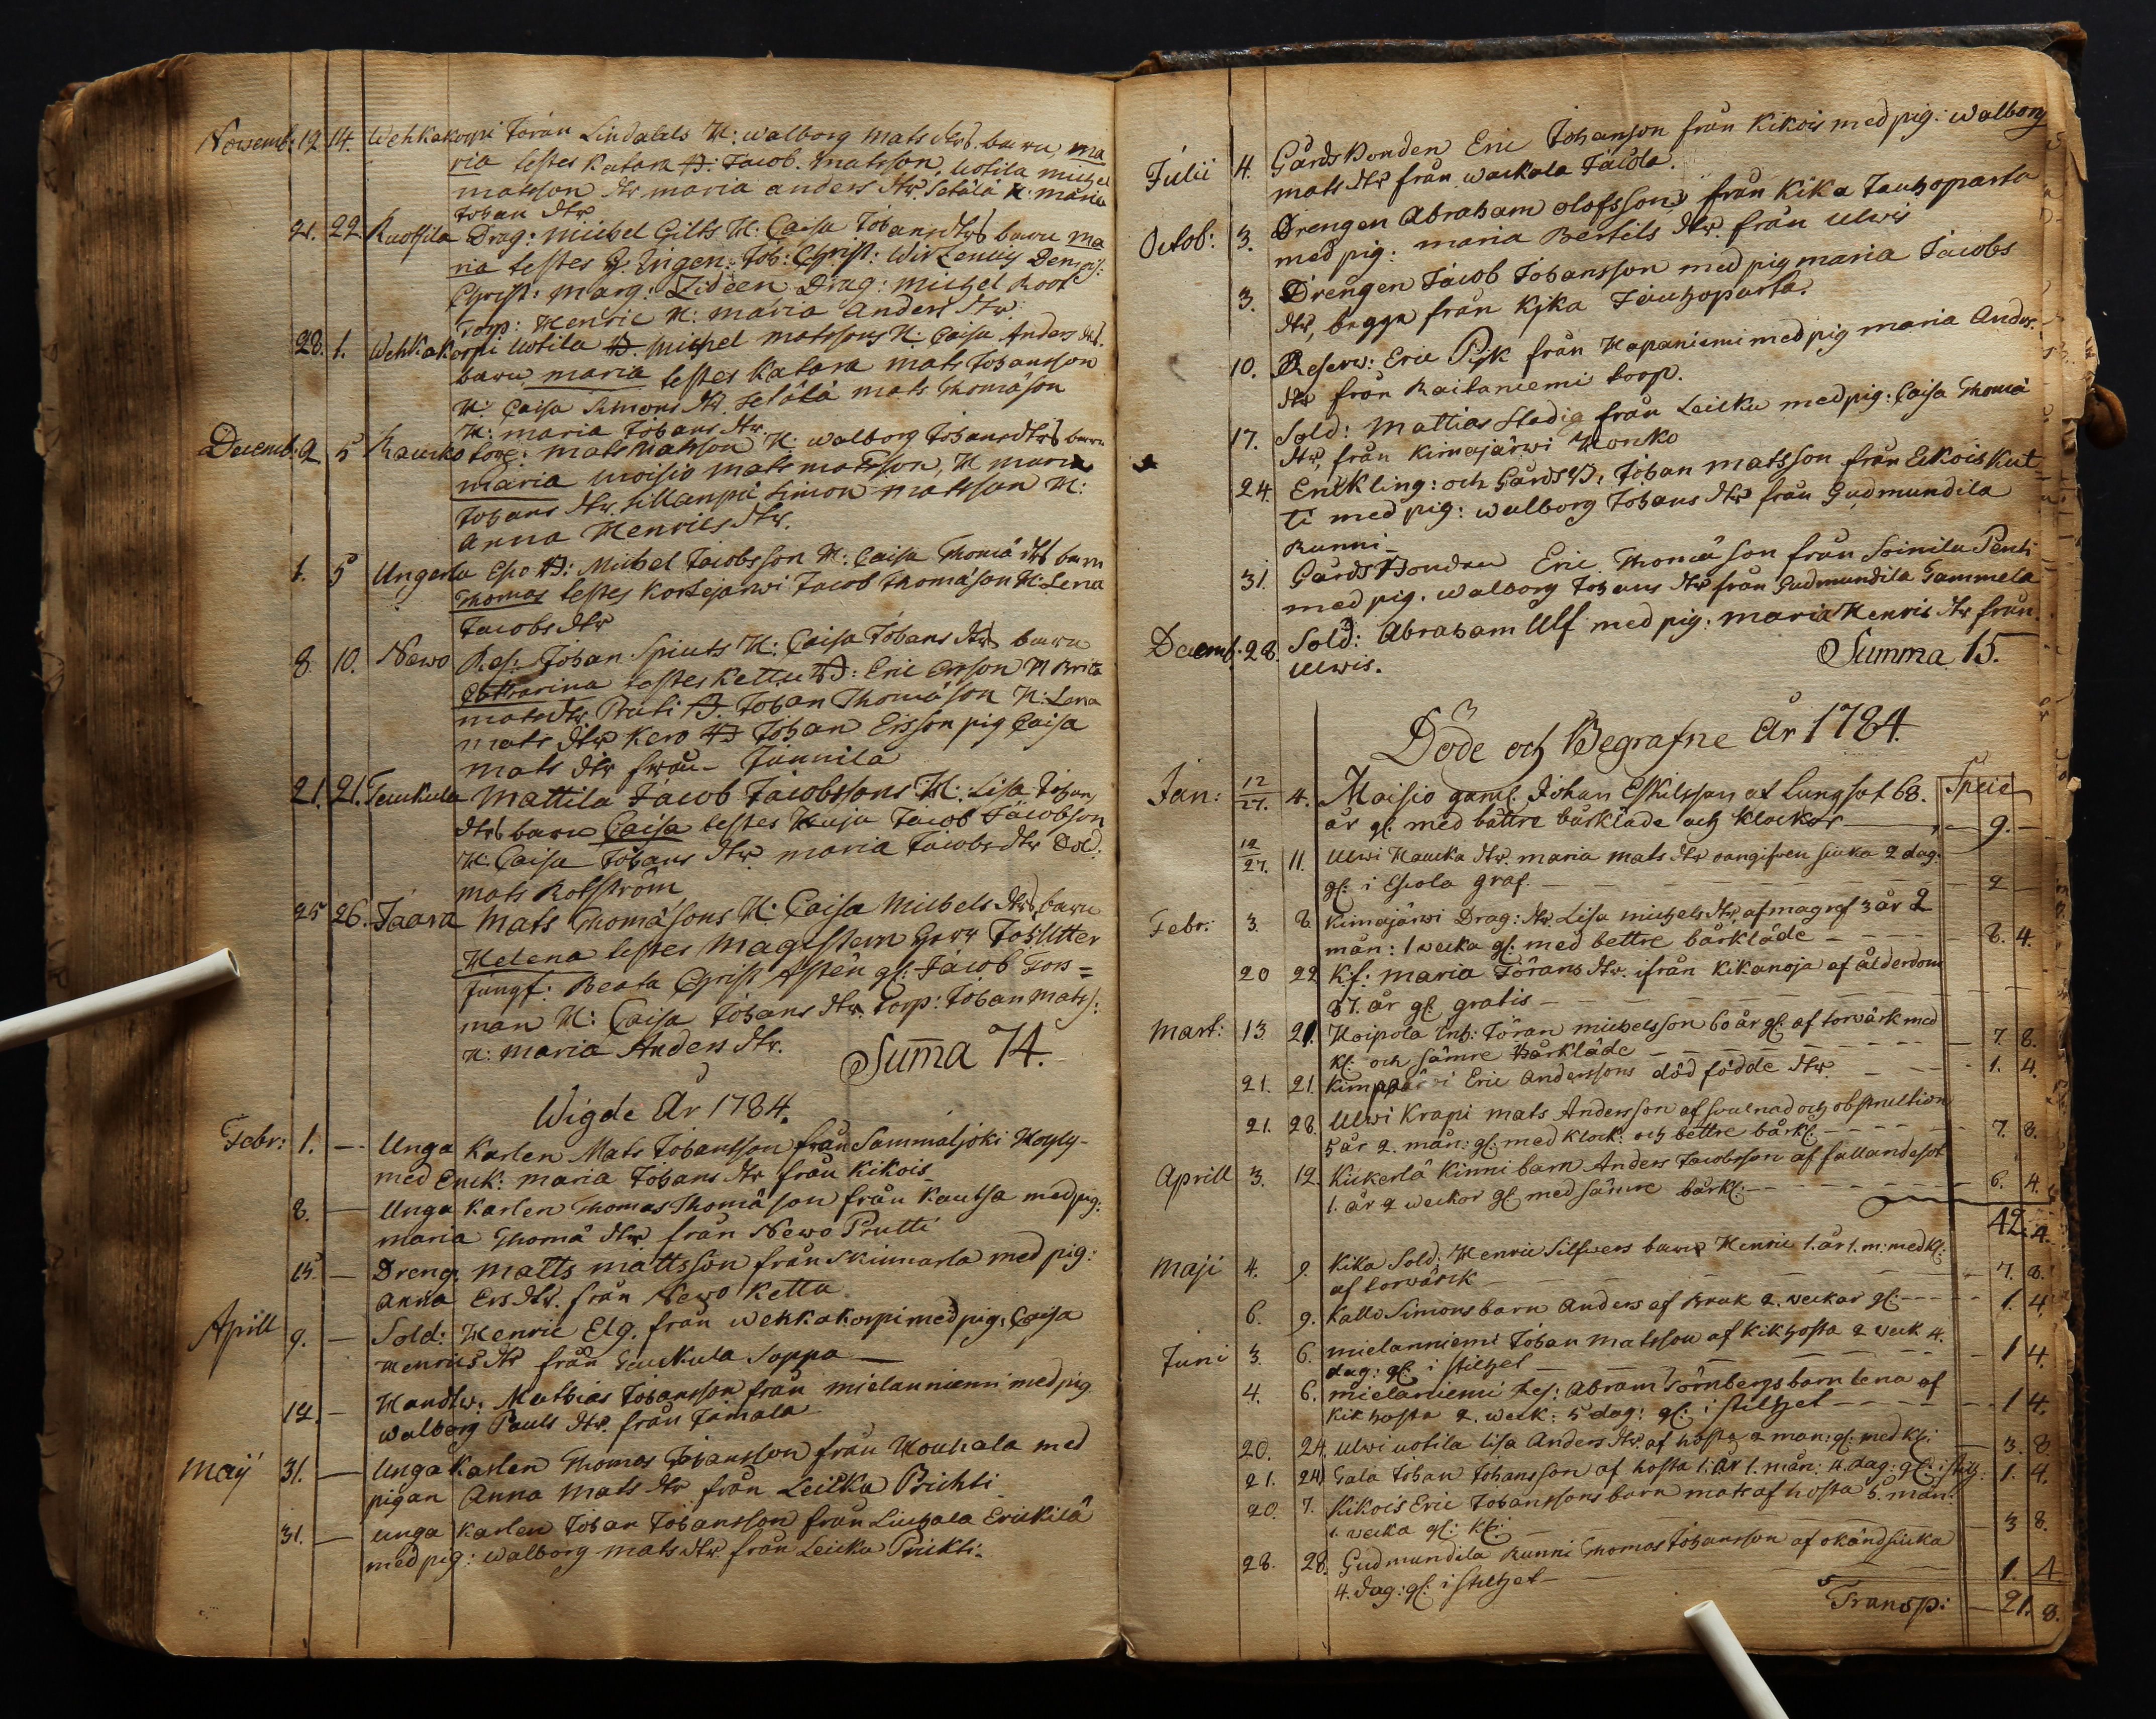 Novemb: 19. 14. Wehkakorpi Jöran Lindalels H: walborg mats dtrs. barn, ma
ria testes Katara B: Jacob matsson, Uotila michel
matsson dtr maria anders dtr. Setälä H: maria
Johan dtr
21. 22. Ruohila Drag: michel Gilts H: Caisa Johans dtrs barn ma
ria testes Ingen: Joh: Christ:
Christ: Marg: Zideen Drag: michel Root
Torp: Henric H: maria Anders dtr.
28. 1. Wehkakorpi Uotila B. michel matssons H: Caisa Anders dtrs.
barn maria testes Katara mats Johansson
H: Caisa Simons dtr. Setälä mats Thomæson
H: maria Johans dtr.
Decemb: 2 5 Raucko torp: mats matsson H: walborg Johans dtrs barn
maria moisio mats matsson, H maria
Johans dtr. Sillanpä Simon matsson H:
Anna Henrics dtr.
1. 5 Ungerla Esco B: Michel Jacobsson H: Caisa Thomæ dtrs barn
Thomas testes Kortejärwi Jacob Thomæson H: Lena
Jacobs dtr
8. 10. Newo Res: Johan Spiuts H: Caisa Johans dtrs barn
Catharina testes Kettu B: Eric Ersson H Brita
mats dtr. Prati B. Johan Thomæson H: Lena
mats dtr Kero B Johan Ersson pig Caisa
mats dtr fron Junnila
21. 21. Teukula Mattila Jacob Jacobssons H: Lisa Johan
dtrs barn Caisa testes Jacob Jacobson
H: Caisa Johans dtr maria Jacobs dtr Sol:
mats Rotström
25 26. Jaara Mats Thomæsons H: Caisa Michels dtrs barn
Helena testes Magistern Herr Joh: Utter
Jungf: Beata Christ Astén gl: Jacob Fors=
man H: Caisa Johans dtr. Torp: Johan Mats:
H: maria Anders dtr. Summa 74.
Wigde År 1784.
Febr: 1. — Unga Karlen Mats Johansson från Sammaljoki
med Enck: maria Johans dtr från Kikois
8. — Unga Karlen Thomas Thomæson från Kautsa med pig:
maria Thomæ dtr från Newo Prutti
15. — Dreng. matts mattsson från Skinnarla med pig:
Anna Ers dtr. från Newo Kettu
Aprill 9. — Sold: Henric Elg. från Wehkakorpi med pig: Caisa
Henrics dtr från Teukula Soppa —
12. — Handlw: Mathias Johansson från mielanniemi med pig
walborg Pauls dtr. från Jämala
Maij 31. — Unga Karlen Thomas Johansson från Houhala med
pigan Anna Mats dtr från Leikku Prichti
31. — unga Karlen Johan Johansson från Liuhala Erickilä
med pig: walborg mats dtr från Leicku Prickti.
Julii 4. Gårds Bonden Eric Johanson från Kikois med pig: walborg
mats dtr från Wackala Jacola.
Octob: 3. Drengen Abraham olofsson från Kika Jauhoparta
med pig: maria Bertils dtr. från Ulwis
3. Drengen Jacob Johansson med pig maria Jacobs
dtr, begge från Kika Jauhoparta.
10. Reserv: Eric Pijk från Hapaniemi med pig maria Anders.
dtr från Raitaniemi torp.
17. Sold: Mattias Stadig från Leicku med pig: Caisa Thomæ
dtr, från Kimajärwi Honko
24. Enckling: och Gårds B, Johan matsson från Eikois Kut
ti med pig: walborg Johans dtr från Gudmundila
Runni
31. Gårds Bonden Eric Thomæson från Soinila Penti
med pig. walborg Johans dtr från Gudmundila Gammela
Decemb. 28. Sold: Abraham Ulf med pig: maria Henric dtr från
Ulwis. Summa 15.
Döde och Begrafne År 1784.
Jan: 12/27. 4. Moisio gaml. Johan Eskilsson af lungsot 68. Speie
år gl: med bättre bårkläde och klockor — 9. —
12/27. 11. Ulwi Haucka dtr. maria mats dtr oangifven siuka 2 dag.
gl: i Escola graf. — 2 —
Febr: 3. 8. Kimajärwi Drag: dtr Lisa michels dtr, af magref 3 år 2
mån: 1 wecka gl. med bettre bårkläde — 8. 4.
20 22 Kf: maria Jörans dtr. ifrån Kikanoja af ålderdom
87. år gl gratis —
Mart: 13 21. Hoipola Inh: Jöran michelsson 60 år gl. af torwärk med
Kl. och sämre Bårkläde — 7. 8.
21. 21. Eric Anderssons död födde dtr. — 1. 4.
21. 28. Ulwi Krapi mats Andersson af swulnad och obstruction
5 år 2. mån: gl: med Klock: och bettre bårkl: — 7. 8.
Aprill 3. 12. Kickerlä Kinni barn Anders Jacobsson af fallandesot
1. år 2 weckor gl med sämre bårkl: — 6. 4.
42. 4.
Maji 4. 9. Kika Sold: Henric Silfwers barn Henric 1. år 1. m: med kl:
af torwärck — 7. 8.
6. 9. Kallo Simons barn Anders af Brak 2. weckar gl: — 1. 4.
Juni 3. 6. mielanniemi Johan matsson af kikhosta 2 weck 4.
dag: gl: i stilhet — 1 4.
4. 6. mielaniemi Res: Abram Törnbergs barn lena af
kikhosta 2. week: 5 dag: gl: i stilhet — 1 4.
20. 24. Ulwi uotila lisa Anders dtr. af hosta 2 mån: gl: med kl: 3. 8
21. 24 Gala Johan Johansson af hosta 1. år 1. mån: 4. dag: gl: i stilh: 1. 4.
20. 7. Kikois Eric Johanssons barn mats af hosta 5. mån:
1. wecka gl: kl: — 3 8.
28. 28. Gudmundila Runni Thomas Johansson af okänd siuka
4. dag: gl: i stilhet — 1. 4
Transp: — 21. 8.